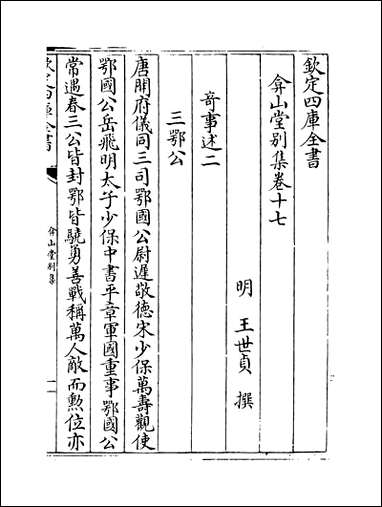 欽定四庫全書
弇山堂別集卷十七
明 王世貞 撰
奇事述二
三鄂公
唐開府儀同三司鄂國公尉遲敬德宋少保萬壽觀使
鄂國公岳飛明太子少保中書平章軍國重事鄂國公
常遇春三公皆封鄂皆驍勇善戰稱萬人敵而勲位亦
欽定四庫全書
弇山堂別集
一